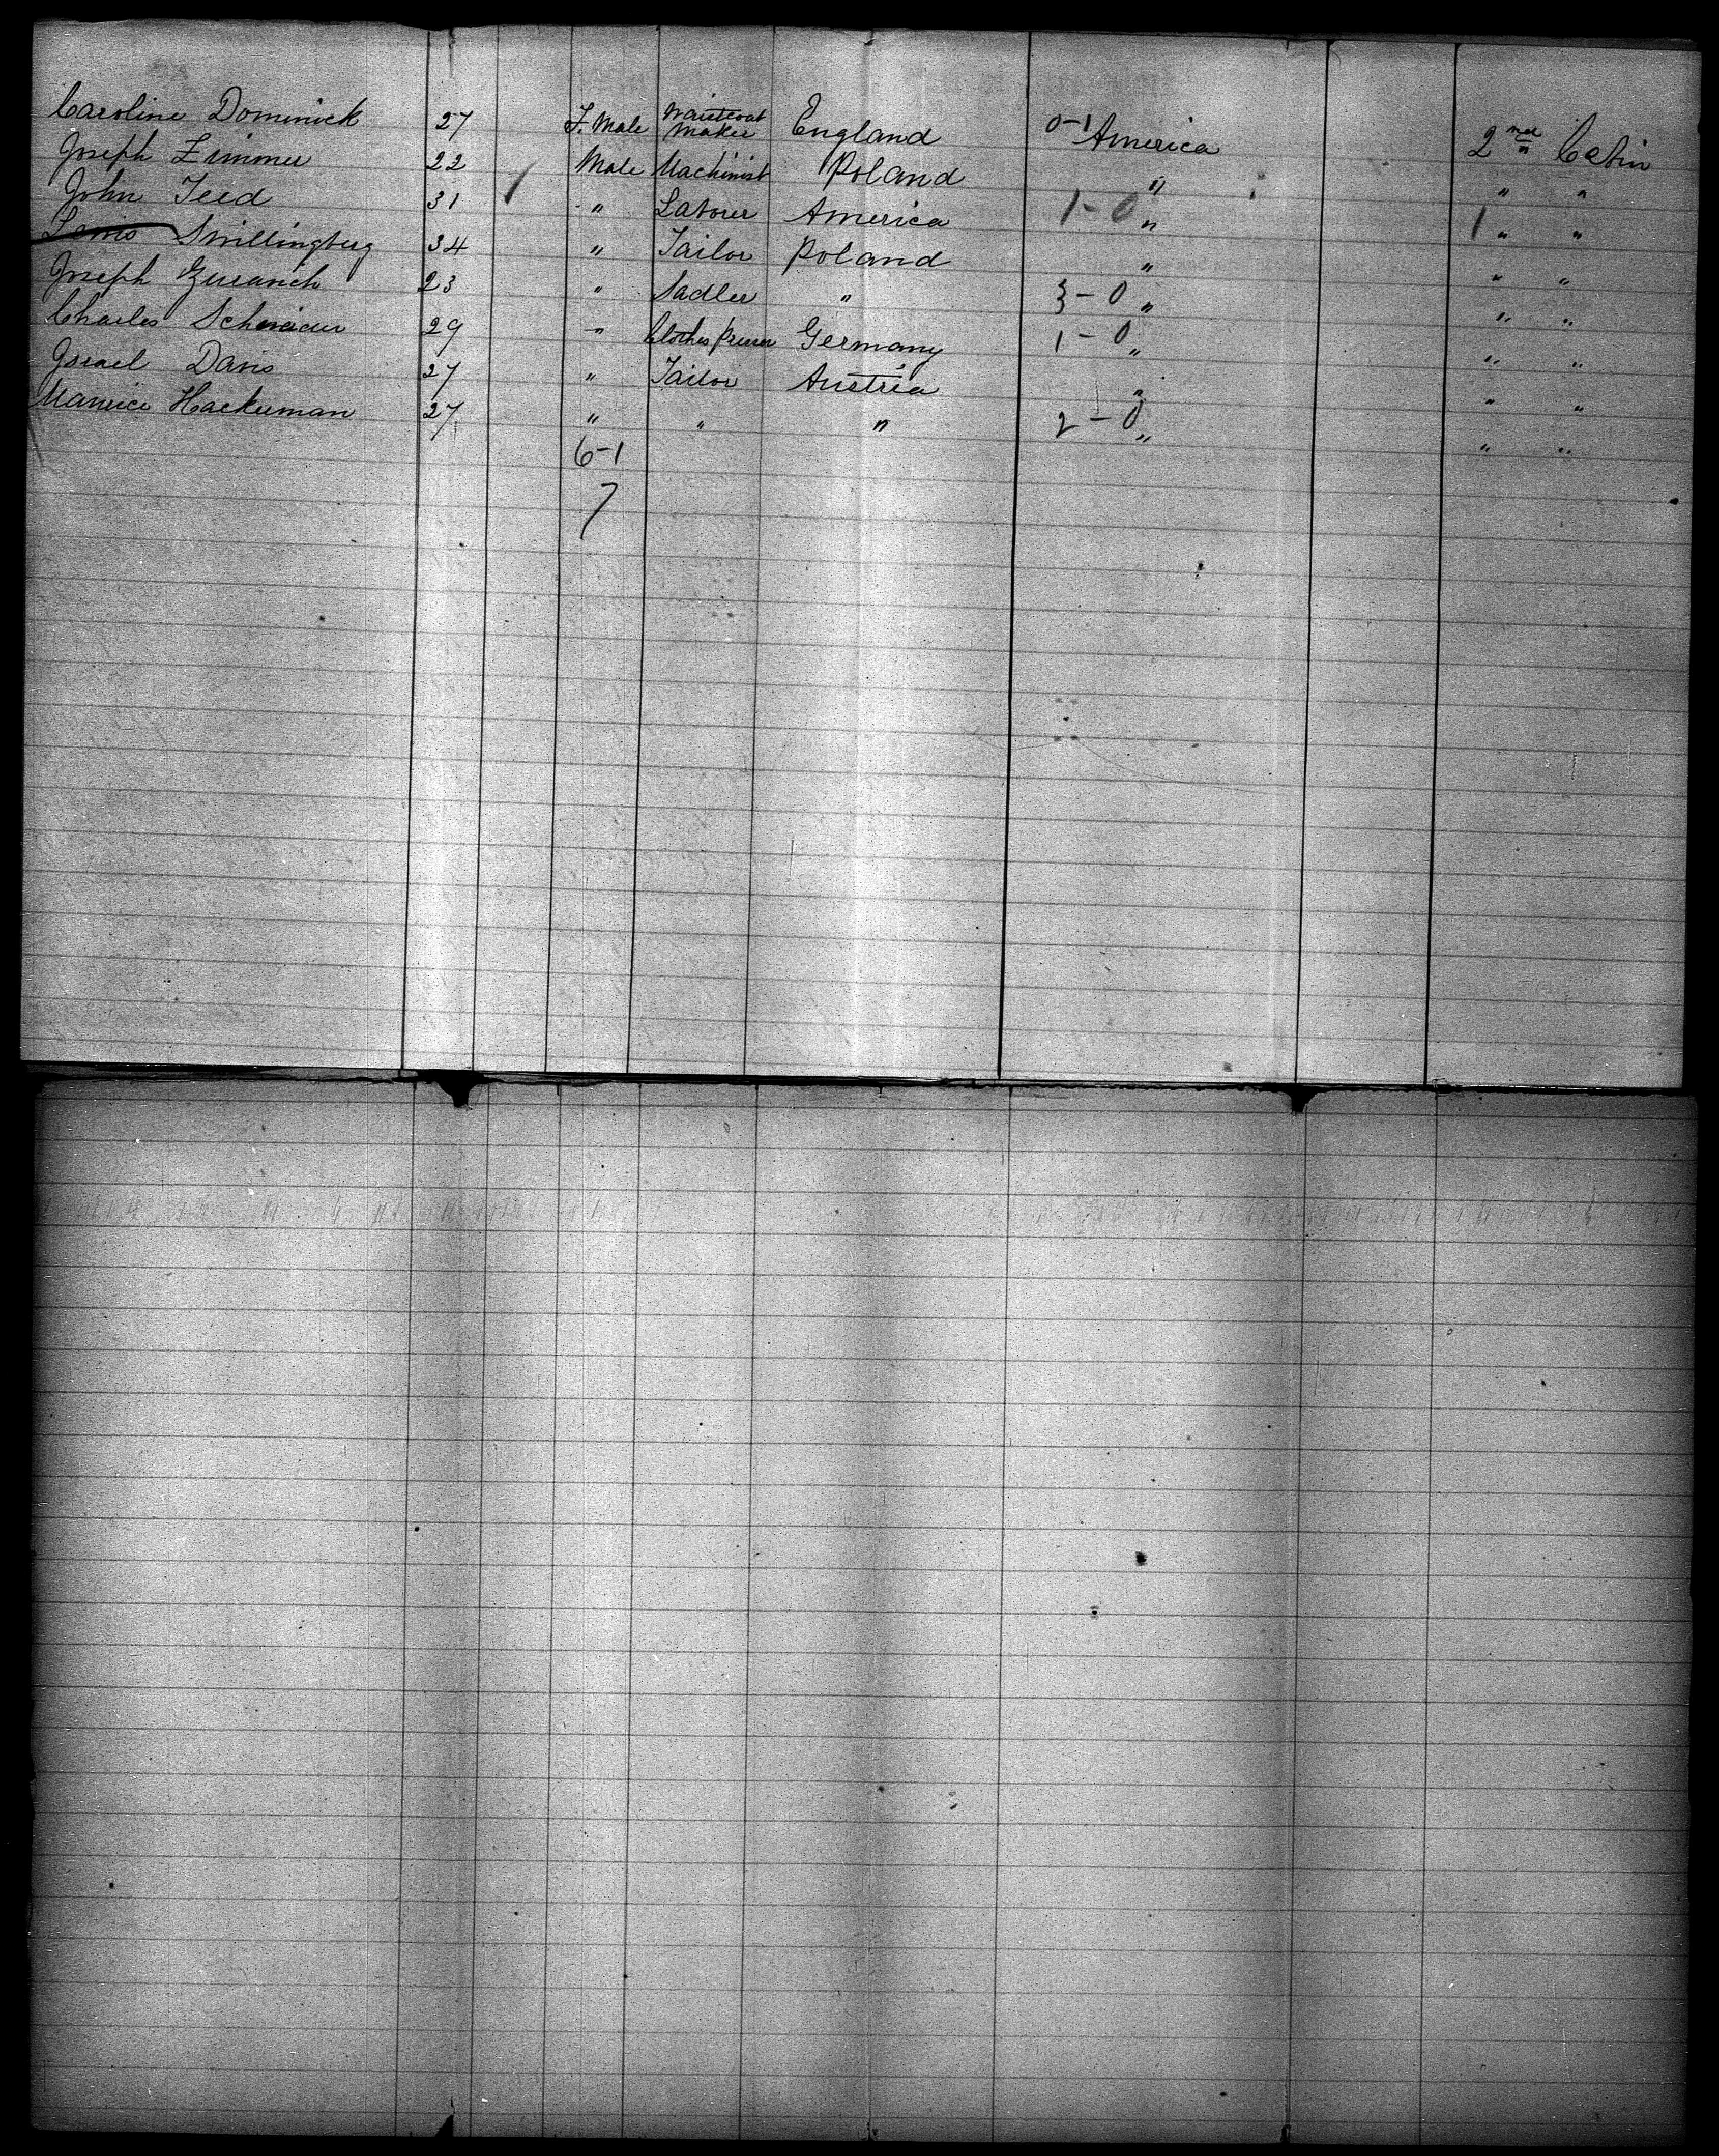 Caroline Dominick 27 F. Male Waistcoat Maker England 0-1 America 2nd Cabin
Joseph Zimmer 22 Male Machinist Poland " " "
John Teed 31 " Laborer America 1-0 " 1 " "
Lewis Snillingberg 34 " Tailor Poland " " "
Joseph 23 " Sadler " 3-0 " " "
Charles 29 " Clothes Presser Germany 1-0 " " "
Israel Davis 27 " Tailor Austria " " "
Maurice Hackerman 27 " " " 2-0 " " "
6-1
7